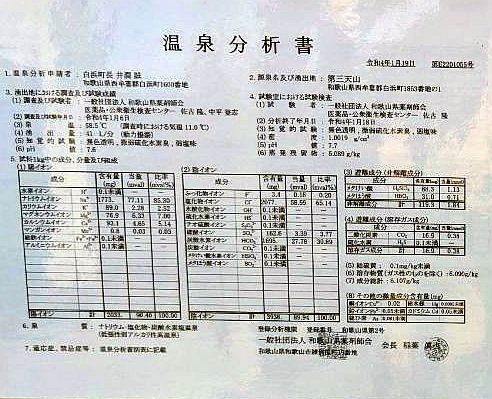 温泉分析書
令和4年1月19日 第E2201005号
1. 温泉分析申請者 : 白浜町長 井澗 誠
和歌山県西牟婁郡白浜町1600番地
2. 源泉名及び湧出地 : 第三天山
和歌山県西牟婁郡白浜町1853番地の1
3. 湧出地における調査及び試験成績
(1) 調査及び試験者 : 一般社団法人 和歌山県薬剤師会
医薬品・公衆衛生検査センター 佐古 隆、中平
(2) 調査及び試験年月日 : 令和4年1月6日
(3) 泉温 : 58.5 ℃ (調査時における気温 11.0 ℃)
(4) 湧出量 : 41 L/分 (動力揚湯)
(5) 知覚的試験 : 無色透明、微弱硫化水素臭、弱塩味
(6) pH値 : 7.6
4. 試験室における試験検査
(1) 試験者 : 一般社団法人 和歌山県薬剤師会
医薬品・公衆衛生検査センター 佐古 隆
(2) 分析終了年月日 : 令和4年1月18日
(3) 知覚的試験 : 無色透明、微弱硫化水素臭、弱塩味
(4) 密度 : 1.0019 g/cm³
(5) pH値 : 7.7
(6) 蒸発残留物 : 5.089 g/kg
5. 試料1kg中の成分、分量及び組成
(1) 陽イオン
成分 含有量 (mg) 当量 (mval) 比率 (mval%)
水素イオン H⁺ 0.1未満
ナトリウムイオン Na⁺ 1773. 77.11 85.30
カリウムイオン K⁺ 89.0 2.28 2.52
マグネシウムイオン 76.9 6.33 7.00
カルシウムイオン 93.1 4.65 5.14
マンガンイオン 0.8 0.03 0.03
アルミニウムイオン 0.1未満
陽イオン計 2033. 90.40 100.00
(2) 陰イオン
成分 含有量 (mg) 当量 (mval) 比率 (mval%)
ふっ化物イオン F⁻ 3.4 0.18 0.20
塩化物イオン Cl⁻ 2077. 58.58 65.14
水酸化物イオン OH⁻ 0.1未満
硫化水素イオン HS⁻ 0.1未満
チオ硫酸イオン 0.1未満
硫酸イオン SO₄²⁻ 162.6 3.39 3.77
炭酸水素イオン HCO₃⁻ 1695. 27.78 30.89
炭酸イオン CO₃²⁻ 0.1未満
メタけい酸水素イオン HSiO₃⁻ 0.1未満
メタほう酸イオン BO₂⁻ 0.1未満
陰イオン計 3938. 89.94 100.00
(3) 遊離成分 (非解離成分)
成分 含有量 (mg) 当量 (mmol)
メタけい酸 H₂SiO₃ 88.3 1.13
メタほう酸 HBO₂ 31.0 0.71
非解離成分計 119.3 1.84
(4) 遊離成分 (溶存ガス成分)
二酸化炭素 CO₂ 16.9 0.38
硫化水素 H₂S 0.1未満
溶存ガス成分計 16.9 0.38
(5) 総硫黄 : 0.1mg/kg未満
(6) 溶存物質 (ガス性のものを除く) : 6.090g/kg
(7) 成分総計 : 6.107g/kg
(8) その他の微量成分含有量 (mg)
6. 泉質 : ナトリウム-塩化物・炭酸水素塩温泉
(低張性弱アルカリ性高温泉)
7. 適応症、禁忌症等 : 温泉分析書別表に記載
登録分析機関 登録番号 和歌山県第2号
一般社団法人 和歌山県薬剤師会
会長 稲葉